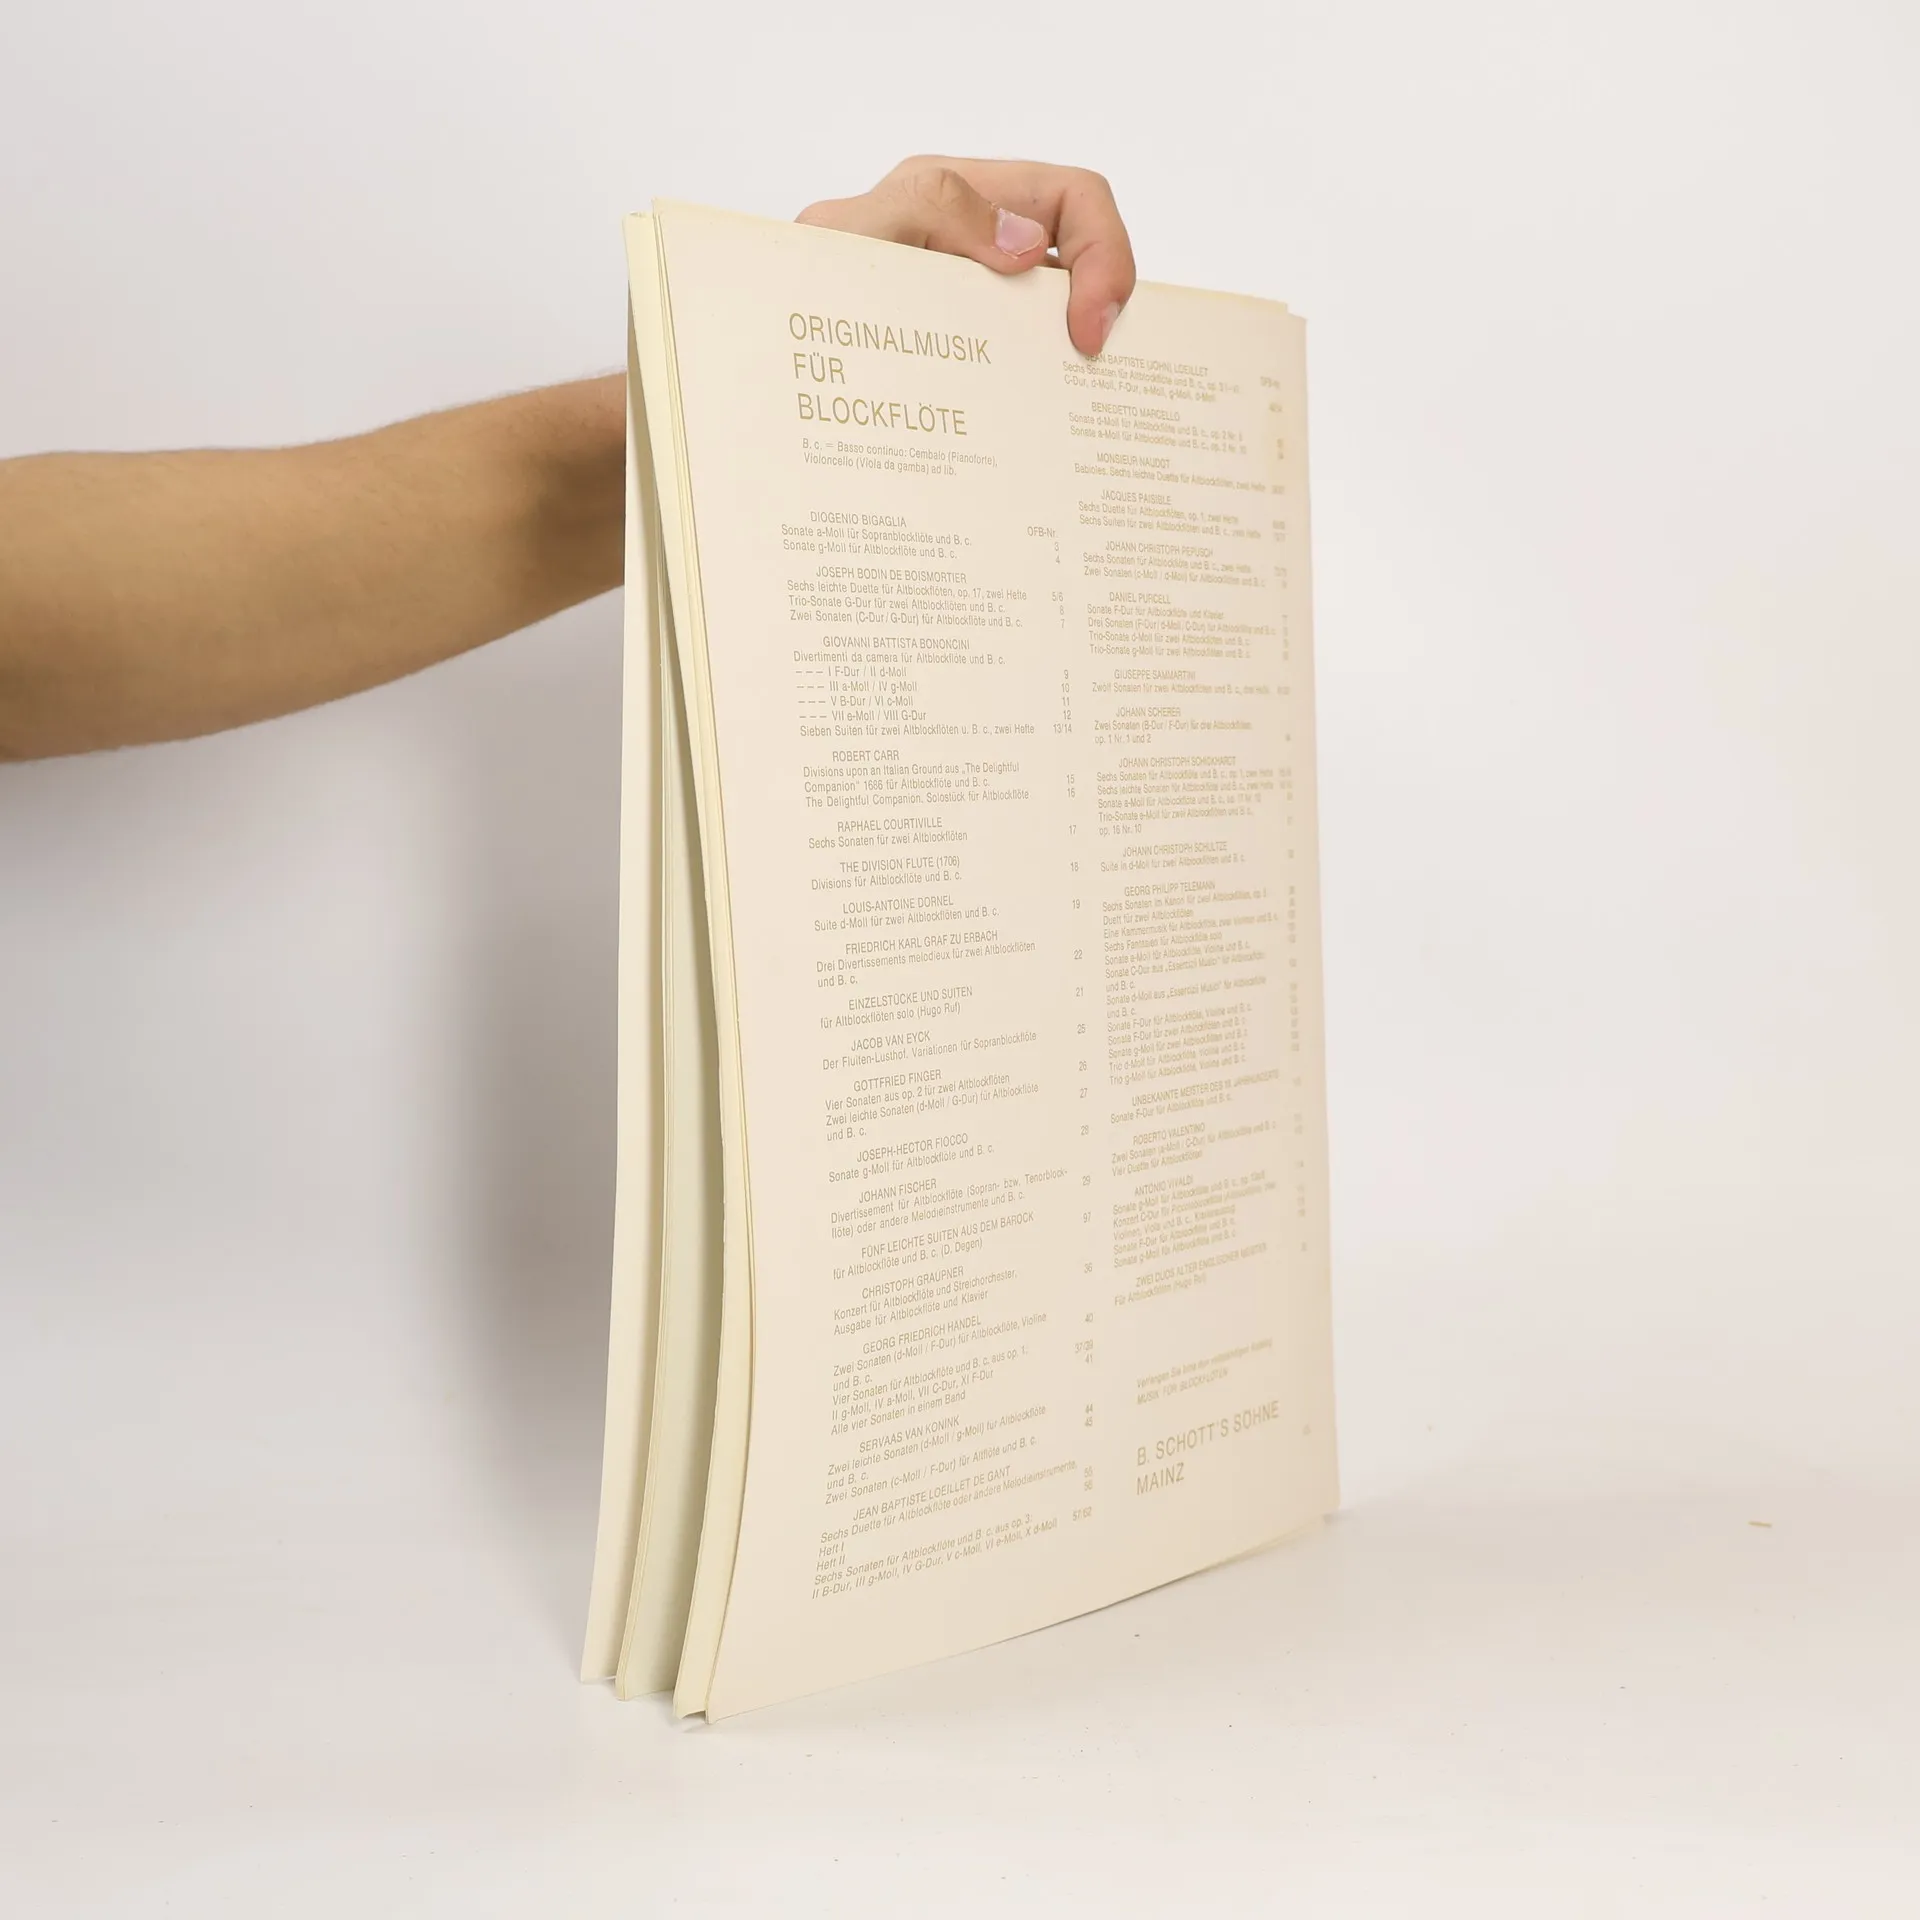 ORIGINALMUSIK
FÜR
BLOCKFLÖTE
B. c. = Basso continuo: Cembalo (Pianoforte),
Violoncello (Viola da gamba) ad lib.
OFB-Nr.
DIOGENIO BIGAGLIA
Sonate a-Moll für Sopranblockflöte und B. c. 3
Sonate g-Moll für Altblockflöte und B. c. 4
JOSEPH BODIN DE BOISMORTIER
Sechs leichte Duette für Altblockflöten, op. 17, zwei Hefte 5/6
Trio-Sonate G-Dur für zwei Altblockflöten und B. c. 8
Zwei Sonaten (C-Dur / G-Dur) für Altblockflöte und B. c. 7
GIOVANNI BATTISTA BONONCINI
Divertimenti da camera für Altblockflöte und B. c.
– – – I F-Dur / II d-Moll 9
– – – III a-Moll / IV g-Moll 10
– – – V B-Dur / VI c-Moll 11
– – – VII e-Moll / VIII G-Dur 12
Sieben Suiten für zwei Altblockflöten u. B. c., zwei Hefte 13/14
ROBERT CARR
Divisions upon an Italian Ground aus „The Delightful
Companion" 1686 für Altblockflöte und B. c. 15
The Delightful Companion. Solostück für Altblockflöte 16
RAPHAEL COURTIVILLE
Sechs Sonaten für zwei Altblockflöten 17
THE DIVISION FLUTE (1706)
Divisions für Altblockflöte und B. c. 18
LOUIS-ANTOINE DORNEL
Suite d-Moll für zwei Altblockflöten und B. c. 19
FRIEDRICH KARL GRAF ZU ERBACH
Drei Divertissements melodieux für zwei Altblockflöten
und B. c. 22
EINZELSTÜCKE UND SUITEN
für Altblockflöten solo (Hugo Ruf) 21
JACOB VAN EYCK
Der Fluiten-Lusthof. Variationen für Sopranblockflöte 25
GOTTFRIED FINGER
Vier Sonaten aus op. 2 für zwei Altblockflöten 26
Zwei leichte Sonaten (d-Moll / G-Dur) für Altblockflöte
und B. c. 27
JOSEPH-HECTOR FIOCCO
Sonate g-Moll für Altblockflöte und B. c. 28
JOHANN FISCHER
Divertissement für Altblockflöte (Sopran- bzw. Tenorblock-
flöte) oder andere Melodieinstrumente und B. c. 29
FÜNF LEICHTE SUITEN AUS DEM BAROCK
für Altblockflöte und B. c. (D. Degen) 97
CHRISTOPH GRAUPNER
Konzert für Altblockflöte und Streichorchester,
Ausgabe für Altblockflöte und Klavier 36
GEORG FRIEDRICH HÄNDEL
Zwei Sonaten (d-Moll / F-Dur) für Altblockflöte, Violine
und B. c. 40
Vier Sonaten für Altblockflöte und B. c. aus op. 1:
II g-Moll, IV a-Moll, VII C-Dur, XI F-Dur 37/39
Alle vier Sonaten in einem Band 41
SERVAAS VAN KONINK
Zwei leichte Sonaten (d-Moll / g-Moll) für Altblockflöte
und B. c. 44
Zwei Sonaten (c-Moll / F-Dur) für Altflöte und B. c. 45
JEAN BAPTISTE LOEILLET DE GANT
Sechs Duette für Altblockflöte oder andere Melodieinstrumente,
Heft I 55
Heft II 56
Sechs Sonaten für Altblockflöte und B. c. aus op. 3:
II B-Dur, III g-Moll, IV G-Dur, V c-Moll, VI e-Moll, X d-Moll 57/62
JEAN BAPTISTE (JOHN) LOEILLET
Sechs Sonaten für Altblockflöte und B. c., op. 3 I–VI
C-Dur, d-Moll, F-Dur, a-Moll, g-Moll, d-Moll
BENEDETTO MARCELLO
Sonate d-Moll für Altblockflöte und B. c., op. 2 Nr.
Sonate a-Moll für Altblockflöte und B. c., op. 2 Nr.
MONSIEUR NAUDOT
Babioles, Sechs leichte Duette für Altblockflöten, zwei Hefte
JACQUES PAISIBLE
Sechs Duette für Altblockflöten, op. 1, zwei Hefte
Sechs Suiten für zwei Altblockflöten und B. c., zwei Hefte
JOHANN CHRISTOPH PEPUSCH
Sechs Sonaten für Altblockflöte und B. c., zwei Hefte
Zwei Sonaten (c-Moll / d-Moll) für Altblockflöte und B. c.
DANIEL PURCELL
Sonate F-Dur für Altblockflöte und Klavier
Drei Sonaten (F-Dur / d-Moll / C-Dur) für Altblockflöte und B. c.
Trio-Sonate d-Moll für zwei Altblockflöten und B. c.
Trio-Sonate g-Moll für zwei Altblockflöten und B. c.
GIUSEPPE SAMMARTINI
Zwölf Sonaten für zwei Altblockflöten und B. c., drei Hefte
JOHANN SCHERER
Zwei Sonaten (B-Dur / F-Dur) für drei Altblockflöten
op. 1 Nr. 1 und 2
JOHANN CHRISTOPH SCHICKHARDT
Sechs Sonaten für Altblockflöte und B. c., op. 1, zwei Hefte
Sechs leichte Sonaten für Altblockflöte und B. c., zwei Hefte
Sonate a-Moll für Altblockflöte und B. c., op. 17 Nr. 12
Trio-Sonate e-Moll für zwei Altblockflöten und B. c.,
op. 16 Nr. 10
JOHANN CHRISTOPH SCHULTZE
Suite in d-Moll für zwei Altblockflöten und B. c.
GEORG PHILIPP TELEMANN
Sechs Sonaten im Kanon für zwei Altblockflöten, op. 5
Duett für zwei Altblockflöten
Eine Kammermusik für Altblockflöte, zwei Violinen und B. c.
Sechs Fantasien für Altblockflöte solo
Sonate a-Moll für Altblockflöte, Violine und B. c.
Sonate C-Dur aus „Essercizii Musici" für Altblockflöte
und B. c.
Sonate d-Moll aus „Essercizii Musici" für Altblockflöte
und B. c.
Sonate F-Dur für Altblockflöte, Violine und B. c.
Sonate F-Dur für zwei Altblockflöten und B. c.
Sonate g-Moll für zwei Altblockflöten und B. c.
Trio d-Moll für Altblockflöte, Violine und B. c.
Trio g-Moll für Altblockflöte, Violine und B. c.
UNBEKANNTE MEISTER DES 18. JAHRHUNDERTS
Sonate F-Dur für Altblockflöte und B. c.
ROBERTO VALENTINO
Zwei Sonaten (a-Moll / C-Dur) für Altblockflöte und B. c.
Vier Duette für Altblockflöten
ANTONIO VIVALDI
Sonate g-Moll für Altblockflöte und B. c.
Konzert C-Dur für Piccoloblockflöte
Violinen, Viola und B. c., Klavierauszug
Sonate F-Dur für Altblockflöte und B. c.
Sonate g-Moll für Altblockflöte und B. c.
ZWEI DUOS ALTER ENGLISCHER MEISTER
Für Altblockflöten (Hugo Ruf)
Verlangen Sie bitte den vollständigen Katalog
MUSIK FÜR BLOCKFLÖTEN
B. SCHOTT'S SÖHNE
MAINZ